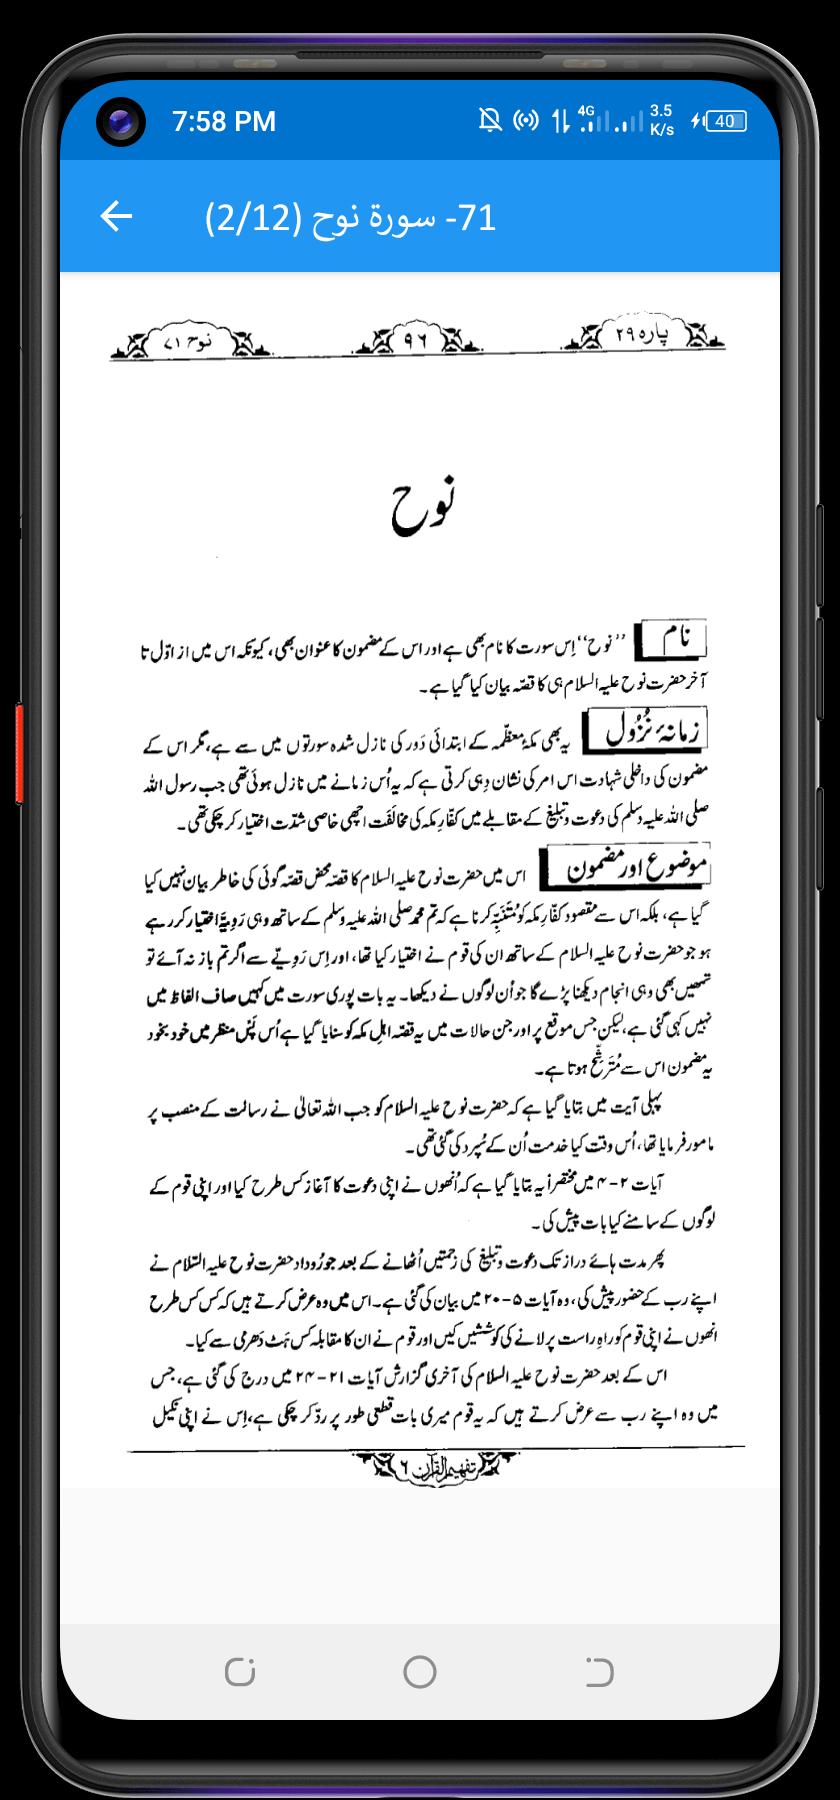 7:58 PM
4G
3.5 K/s
40
71- سورة نوح (2/12)
پارہ ۲۹
۹۶
نوح ۷۱
نوح
نام
’’نوح‘‘ اِس سورت کا نام بھی ہے اور اس کے مضمون کا عنوان بھی، کیونکہ اس میں از اوّل تا
آخر حضرت نوح علیہ السلام ہی کا قصّہ بیان کیا گیا ہے۔
زمانۂ نُزُول
یہ بھی مکۂ معظّمہ کے ابتدائی دَور کی نازل شدہ سورتوں میں سے ہے، مگر اس کے
مضمون کی داخلی شہادت اس امر کی نشان دِہی کرتی ہے کہ یہ اُس زمانے میں نازل ہوئی تھی جب رسول اللہ
صلی اللہ علیہ وسلم کی دعوت و تبلیغ کے مقابلے میں کفّارِ مکہ کی مخالَفَت اچھی خاصی شدّت اختیار کر چکی تھی۔
موضوع اور مضمون
اس میں حضرت نوح علیہ السلام کا قصّہ محض قصّہ گوئی کی خاطر بیان نہیں کیا
گیا ہے، بلکہ اس سے مقصود کفّارِ مکہ کو مُتَنَبِّہ کرنا ہے کہ تم محمد صلی اللہ علیہ وسلم کے ساتھ وہی رَوِیّہ اختیار کر رہے
ہو جو حضرت نوح علیہ السلام کے ساتھ ان کی قوم نے اختیار کیا تھا، اور اِس رَوِیّے سے اگر تم باز نہ آئے تو
تمھیں بھی وہی انجام دیکھنا پڑے گا جو اُن لوگوں نے دیکھا۔ یہ بات پوری سورت میں کہیں صاف الفاظ میں
نہیں کہی گئی ہے، لیکن جس موقع پر اور جن حالات میں یہ قصّہ اہلِ مکہ کو سنایا گیا ہے اُس پَس منظر میں خود بخود
یہ مضمون اس سے مُتَرَشِّح ہوتا ہے۔
پہلی آیت میں بتایا گیا ہے کہ حضرت نوح علیہ السلام کو جب اللہ تعالیٰ نے رسالت کے منصب پر
مامور فرمایا تھا، اُس وقت کیا خدمت اُن کے سُپرد کی گئی تھی۔
آیات ۲-۴ میں مختصراً یہ بتایا گیا ہے کہ اُنھوں نے اپنی دعوت کا آغاز کس طرح کیا اور اپنی قوم کے
لوگوں کے سامنے کیا بات پیش کی۔
پھر مدت ہائے دراز تک دعوت و تبلیغ کی زحمتیں اُٹھانے کے بعد جو رُوداد حضرت نوح علیہ السّلام نے
اپنے رب کے حضور پیش کی، وہ آیات ۵-۲۰ میں بیان کی گئی ہے۔ اس میں وہ عرض کرتے ہیں کہ کس کس طرح
انھوں نے اپنی قوم کو راہِ راست پر لانے کی کوششیں کیں اور قوم نے ان کا مقابلہ کس ہَٹ دَھرمی سے کیا۔
اس کے بعد حضرت نوح علیہ السلام کی آخری گزارش آیات ۲۱-۲۴ میں درج کی گئی ہے، جس
میں وہ اپنے رب سے عرض کرتے ہیں کہ یہ قوم میری بات قطعی طور پر ردّ کر چکی ہے، اِس نے اپنی نکیل
تفہیم القرآن ۶